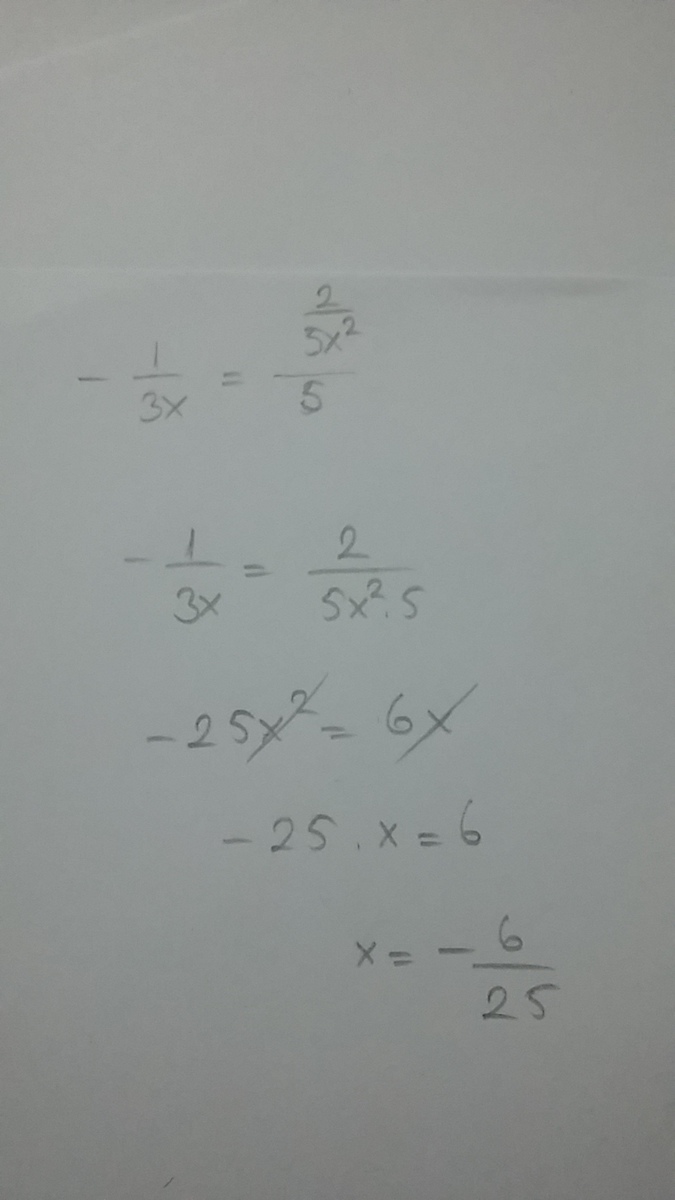 - 1/3x = (2/5x²)/5
- 1/3x = 2/5x².5
-25x² = 6x
-25.x = 6
x = - 6/25